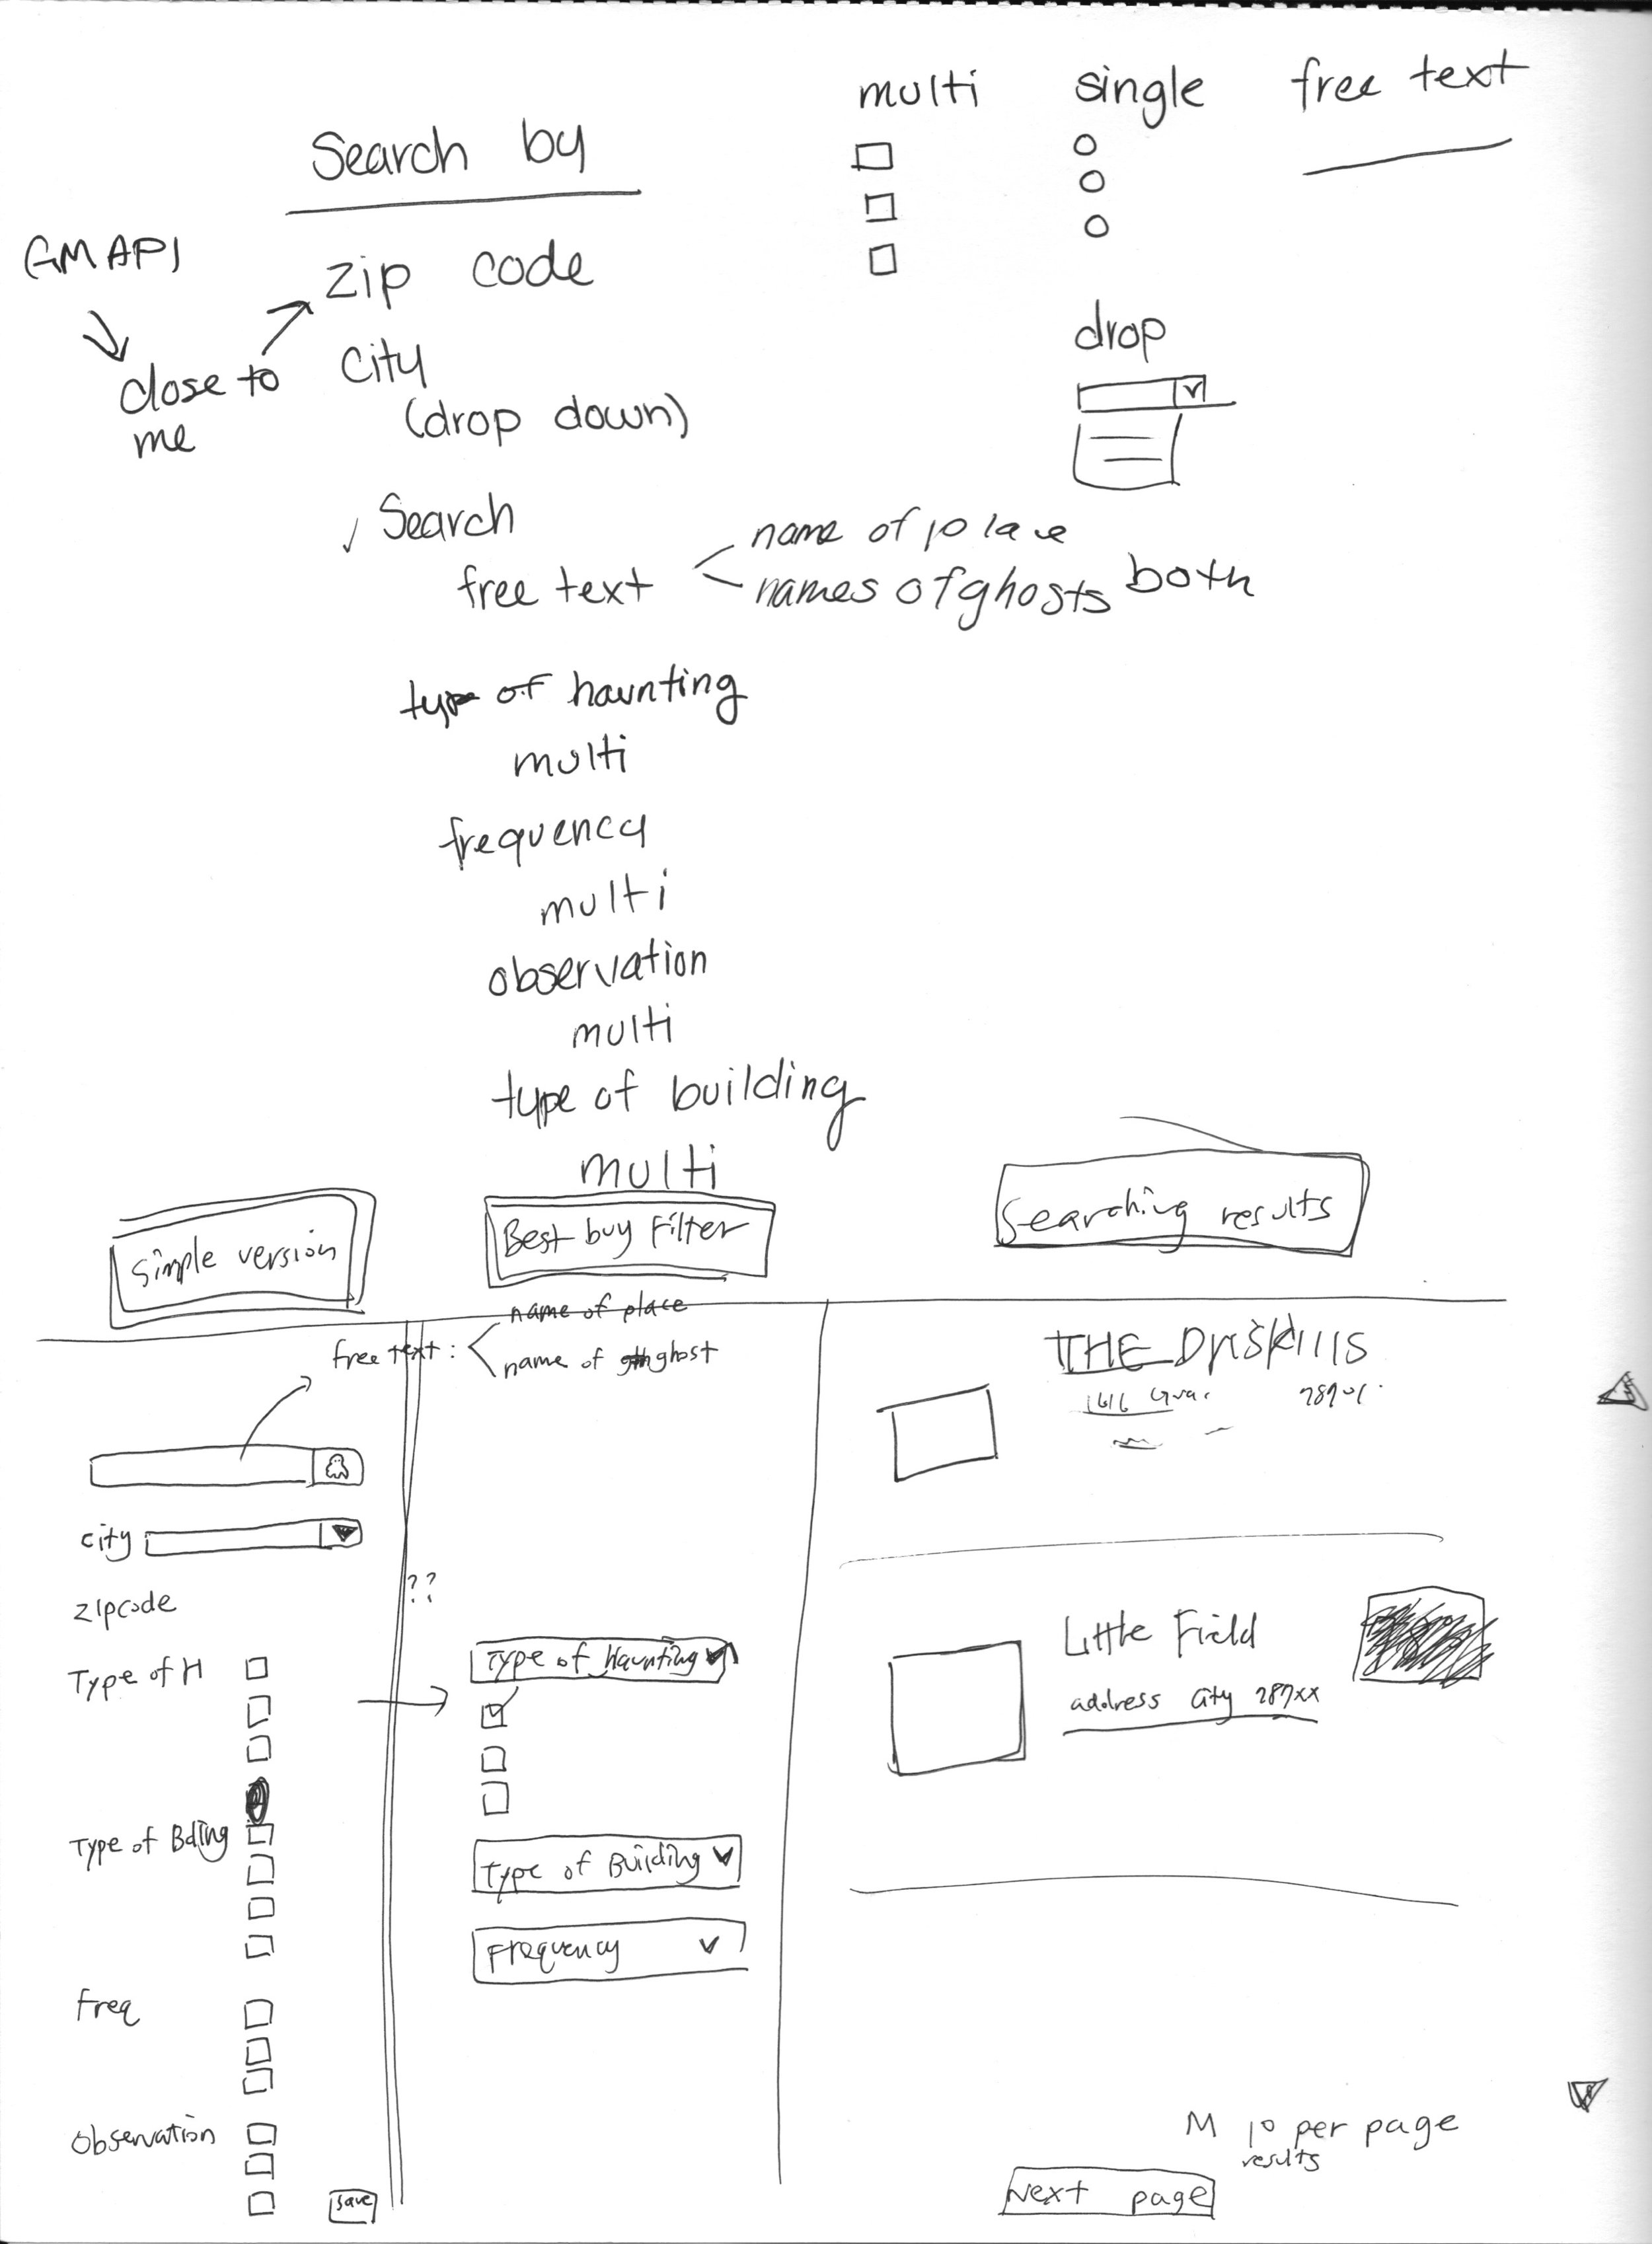 multi single free text
Search by
GM API
zip code
close to me
city
(drop down)
drop
Search
free text
name of place
names of ghosts both
type of haunting
multi
frequency
multi
observation
multi
type of building
multi
simple version
Best buy Filter
Searching results
free text :
name of place
name of ghost
THE DRISKILLS
1616
city
zipcode
??
Type of H
Type of Haunting
Little Field
address city 787xx
Type of Bding
Type of Building
Frequency
Freq
Observation
save
M 10 per page
results
Next page